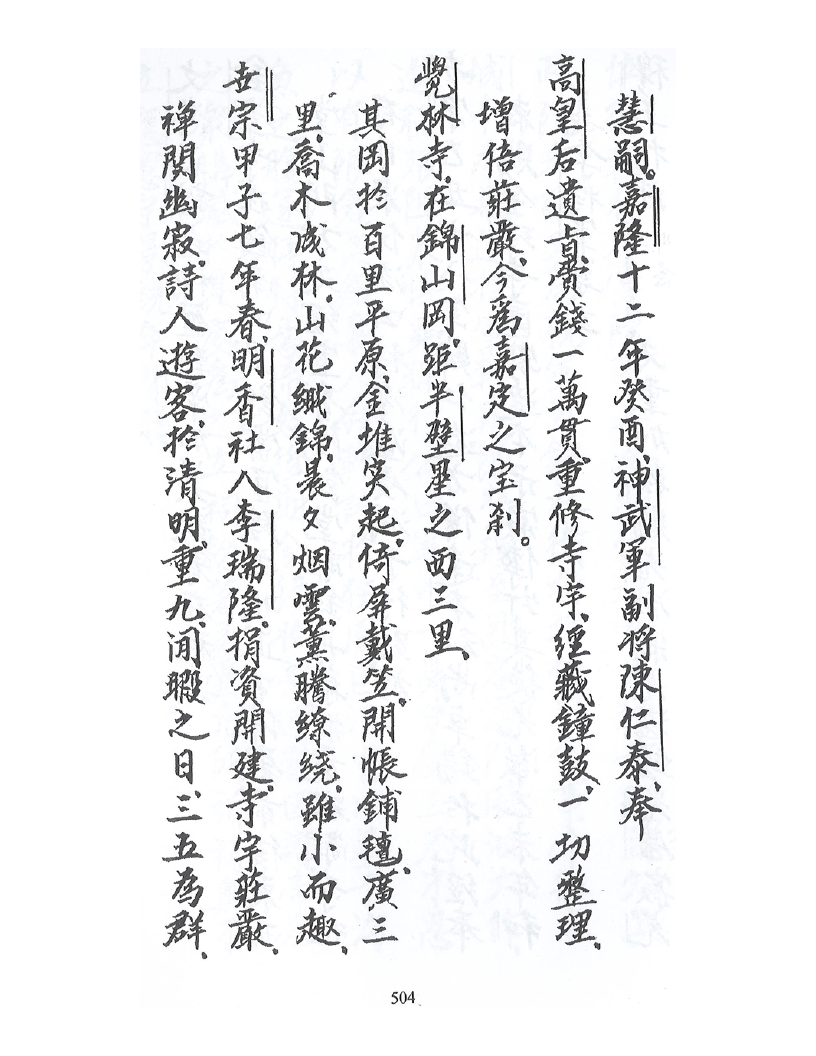 慧嗣。嘉隆十二年癸酉、神武軍副将陳仁泰、奉
高皇后遺旨、賫錢一萬貫、重修寺宇、經藏鐘鼓、一切整理、
增倍莊嚴、今爲嘉定之宝刹。
覺林寺、在錦山岡、距半壁壘之西三里、
其岡於百里平原、金堆突起、倚屏戴笠、開帳鋪氊、廣三
里、喬木成林、山花織錦、晨夕烟雲、薰騰繚繞、雖小而趣、
世宗甲子七年春、明香社人李瑞隆、捐資開建、寺宇莊嚴、
禅関幽寂、詩人遊客、於清明、重九、閒暇之日、三五為群、
504